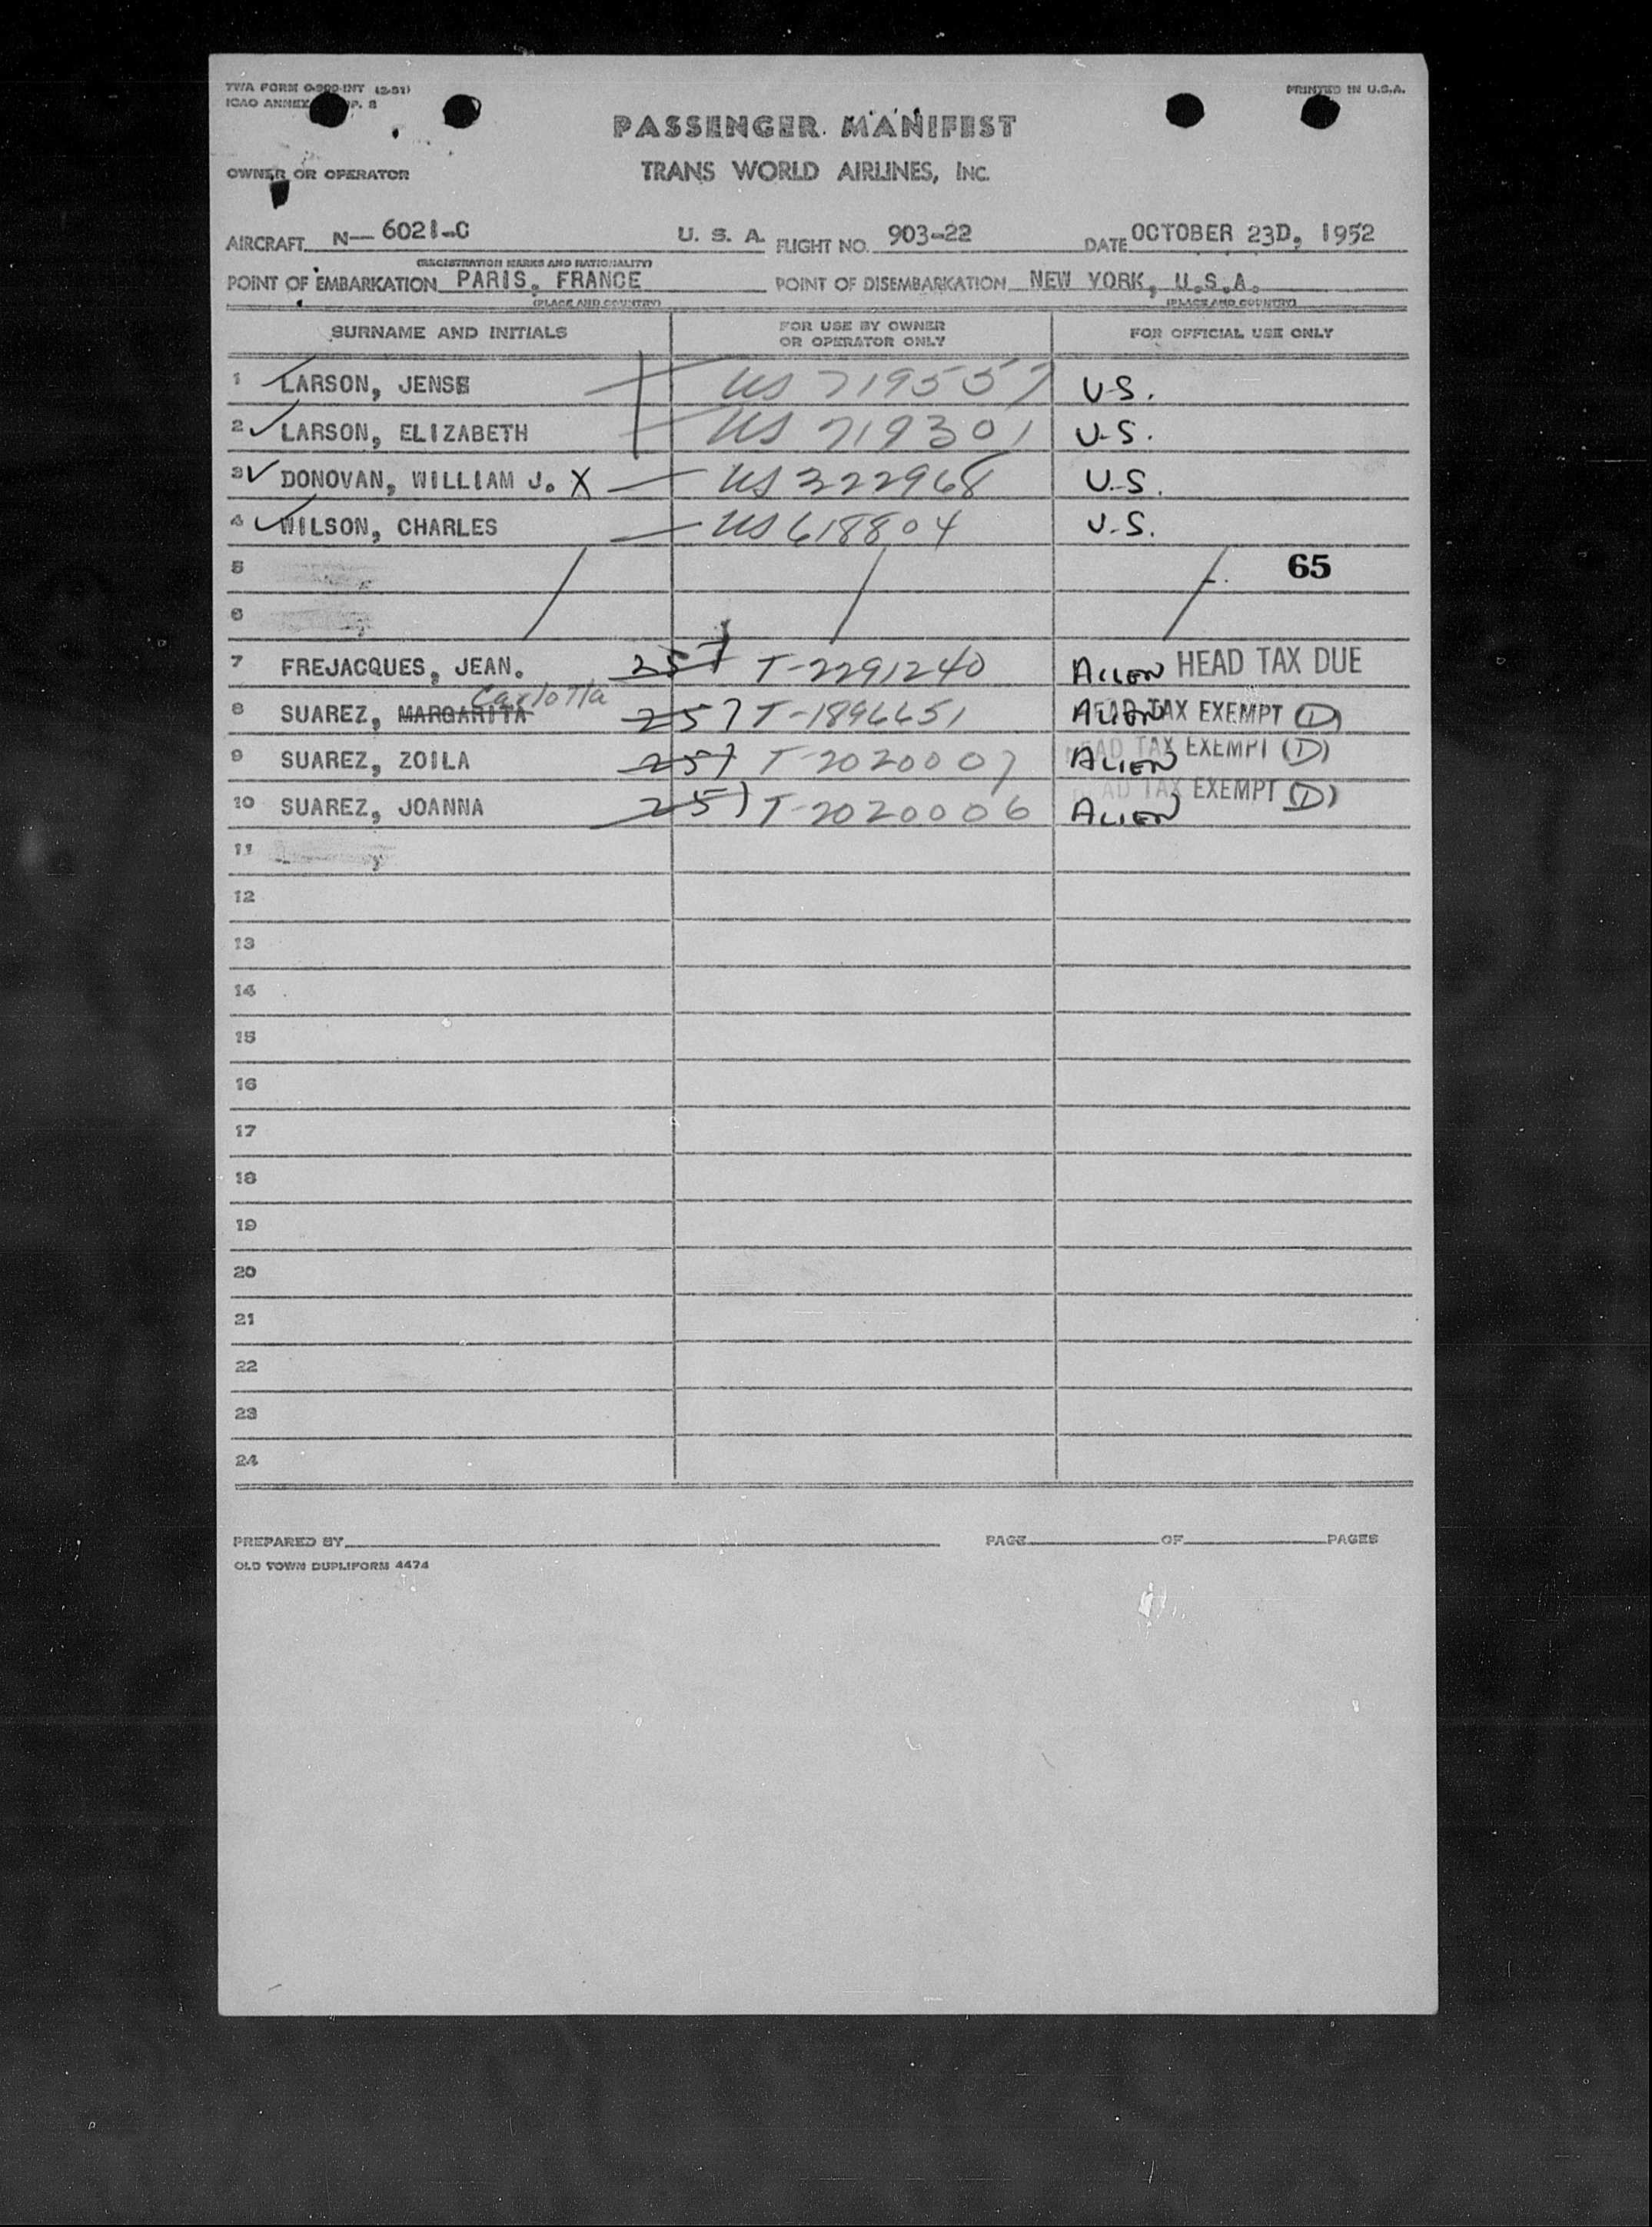 TWA FORM O-900-INT (2-51)
PRINTED IN U.S.A.
ICAO ANNEX P. 8
PASSENGER MANIFEST
OWNER OR OPERATOR
TRANS WORLD AIRLINES, INC.
AIRCRAFT N- 6021-C U. S. A. FLIGHT NO. 903-22 DATE OCTOBER 23D, 1952
(REGISTRATION MARKS AND NATIONALITY)
POINT OF EMBARKATION PARIS, FRANCE POINT OF DISEMBARKATION NEW YORK, U.S.A.
(PLACE AND COUNTRY) (PLACE AND COUNTRY)
SURNAME AND INITIALS
FOR USE BY OWNER
OR OPERATOR ONLY
FOR OFFICIAL USE ONLY
1 LARSON, JENSE US 719557 U.S.
2 LARSON, ELIZABETH US 719301 U.S.
3 DONOVAN, WILLIAM J. X US 322968 U.S.
4 WILSON, CHARLES US 618804 U.S.
5 65
6
7 FREJACQUES, JEAN. 257 T-2291240 ALIEN HEAD TAX DUE
Carlotta
8 SUAREZ, MARGARITA 257 T-1896651 ALIEN HEAD TAX EXEMPT (D)
9 SUAREZ, ZOILA 257 T-2020007 ALIEN HEAD TAX EXEMPT (D)
10 SUAREZ, JOANNA 257 T-2020006 ALIEN HEAD TAX EXEMPT (D)
11
12
13
14
15
16
17
18
19
20
21
22
23
24
PREPARED BY PAGE OF PAGES
OLD TOWN DUPLIFORM 4474